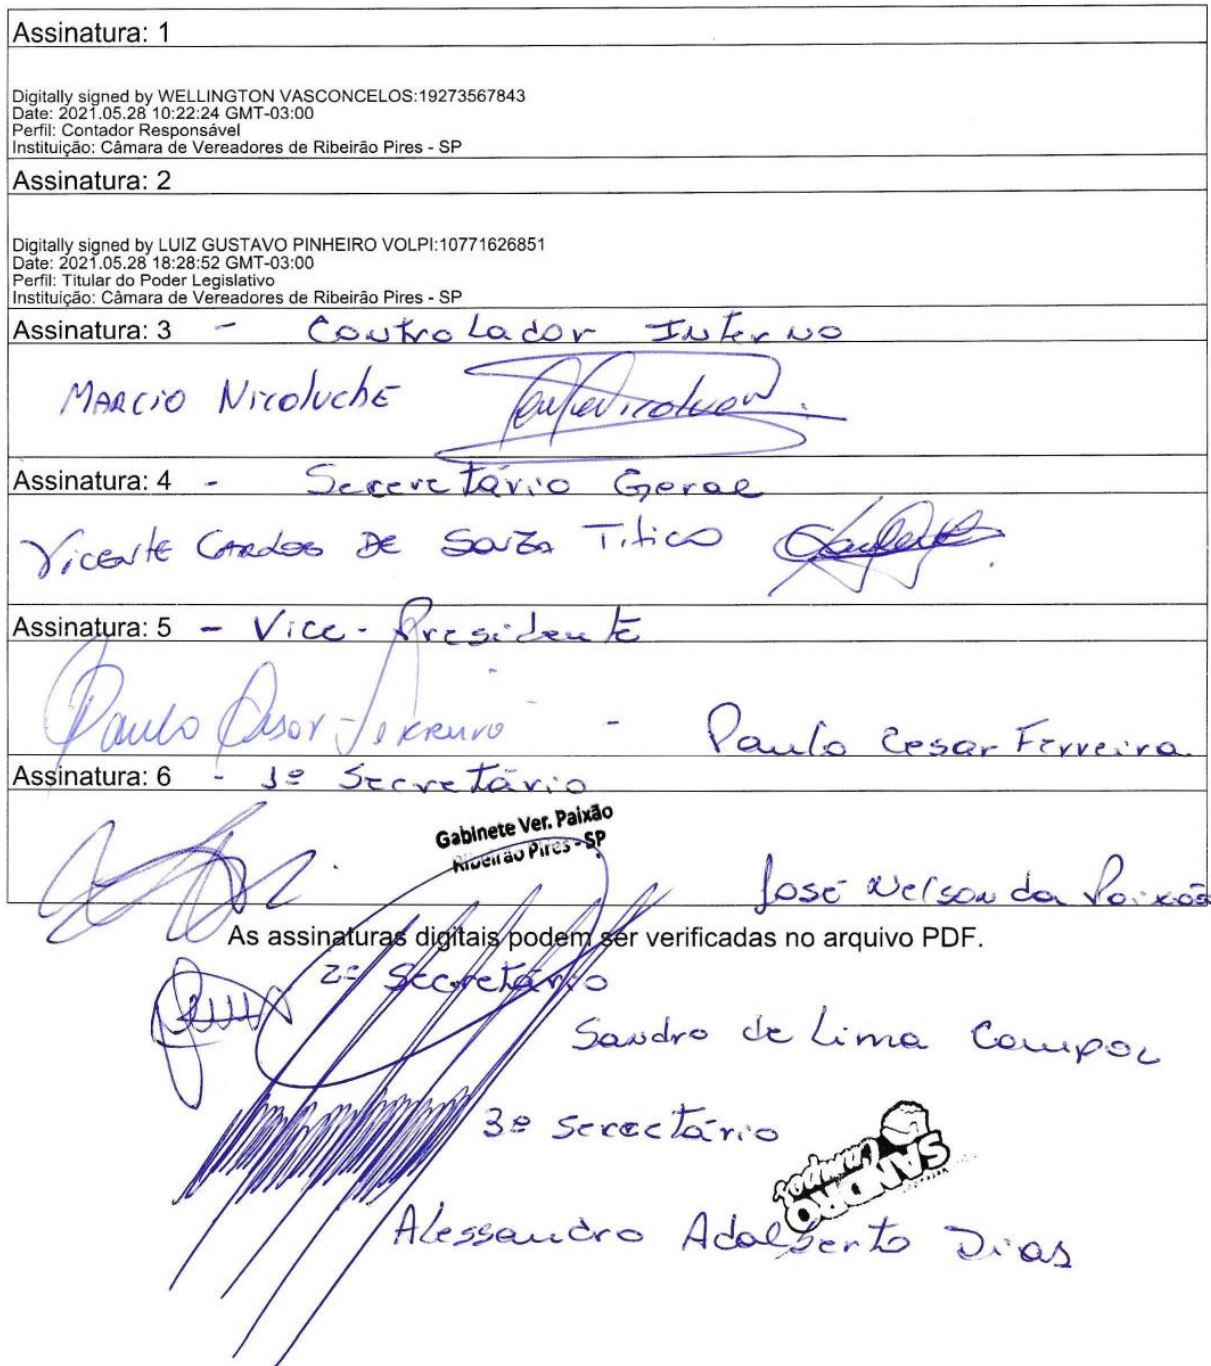 Assinatura: 1
Digitally signed by WELLINGTON VASCONCELOS:19273567843
Date: 2021.05.28 10:22:24 GMT-03:00
Perfil: Contador Responsável
Instituição: Câmara de Vereadores de Ribeirão Pires - SP
Assinatura: 2
Digitally signed by LUIZ GUSTAVO PINHEIRO VOLPI:10771626851
Date: 2021.05.28 18:28:52 GMT-03:00
Perfil: Titular do Poder Legislativo
Instituição: Câmara de Vereadores de Ribeirão Pires - SP
Assinatura: 3 - Controlador Interno
MARCIO NicoluchE
Assinatura: 4 - Secretário Geral
VicentE DE SouZa Titico
Assinatura: 5 - Vice-Presidente
Paulo Cesar Ferreira - Paulo Cesar Ferreira
Assinatura: 6 - 1º Secretário
Gabinete Ver. Paixão
Ribeirão Pires - SP
José Nelson da Paixão
As assinaturas digitais podem ser verificadas no arquivo PDF.
2º Secretário
Sandro de Lima Campos
3º Secretário
SANDRO
Campos
Alessandro Adalberto Dias